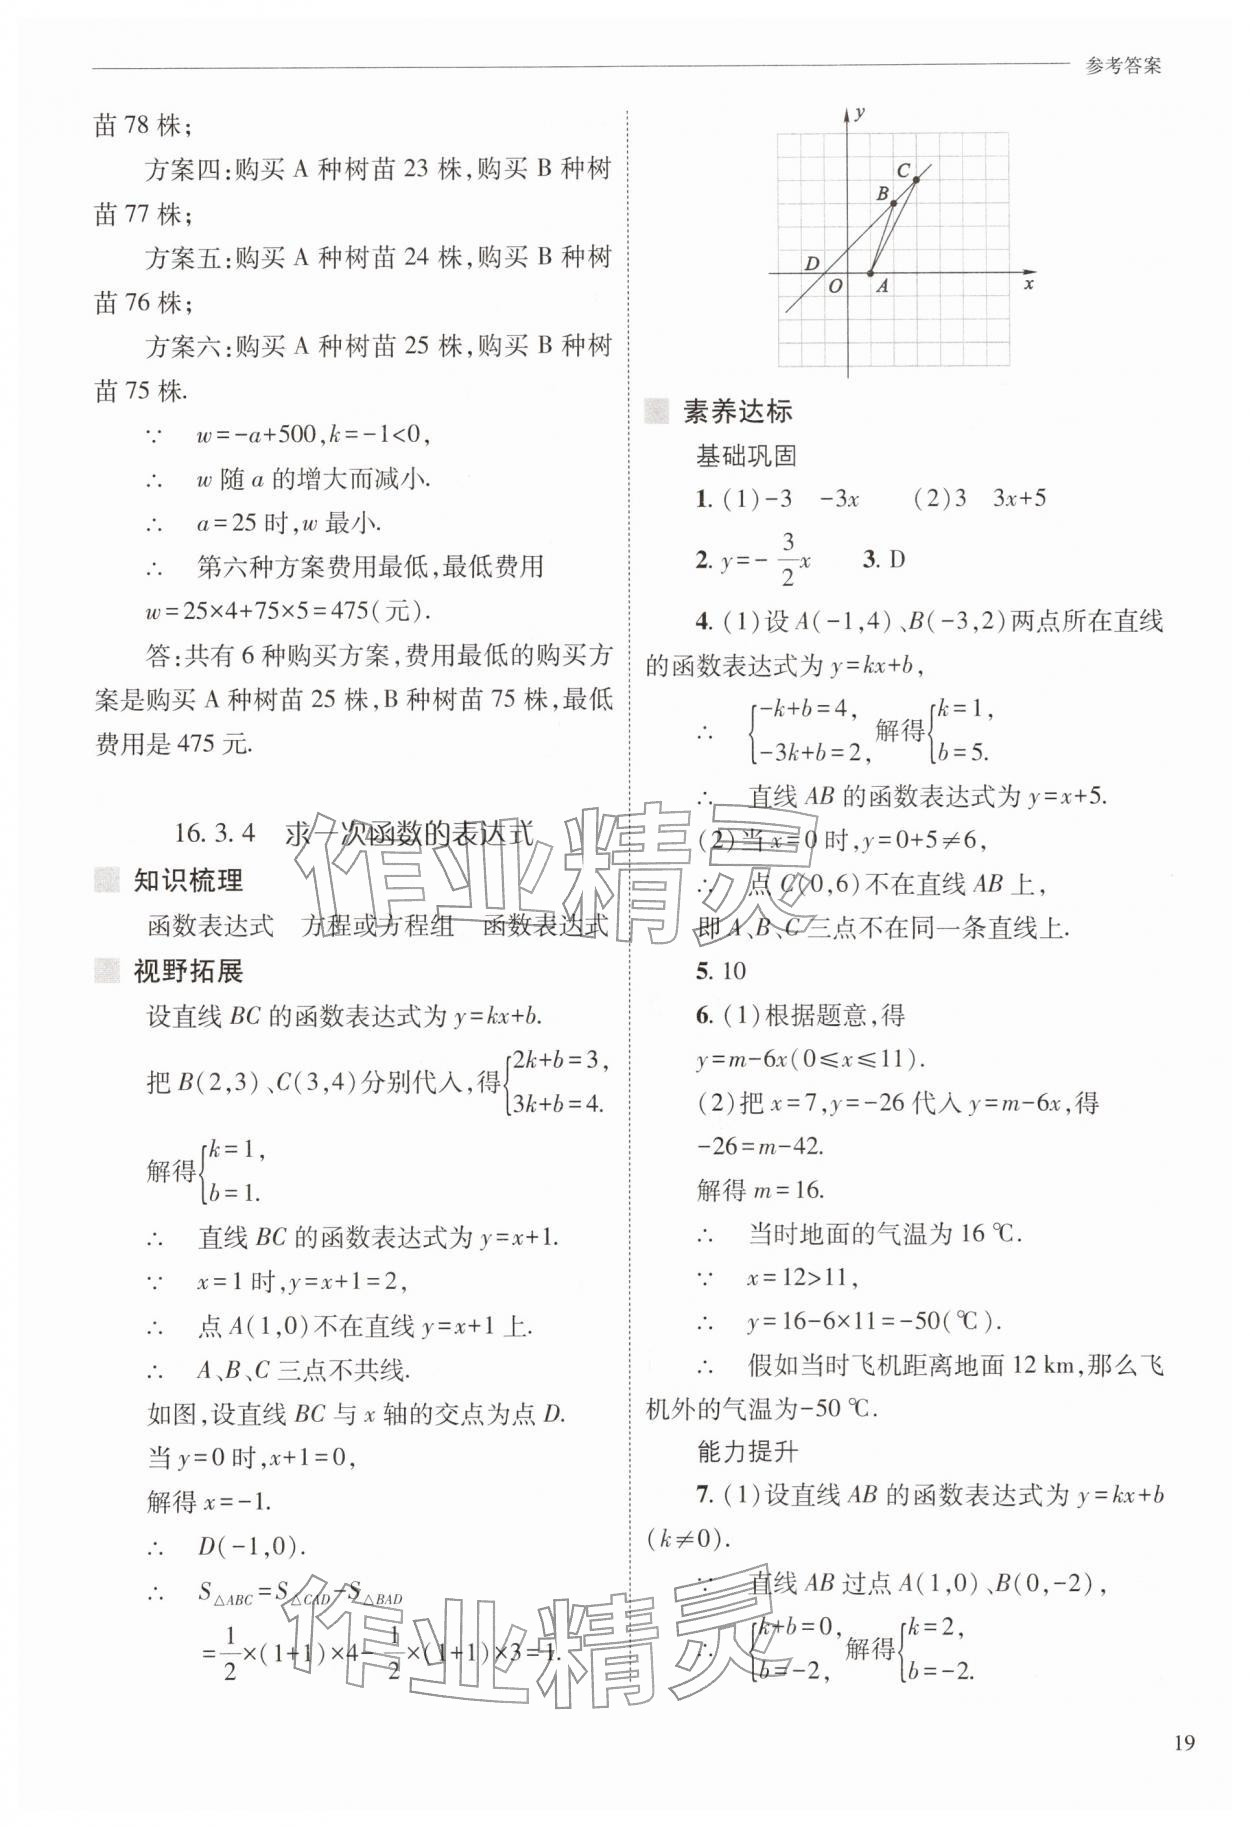 参考答案
苗 78 株;
方案四:购买 A 种树苗 23 株,购买 B 种树
苗 77 株;
方案五:购买 A 种树苗 24 株,购买 B 种树
苗 76 株;
方案六:购买 A 种树苗 25 株,购买 B 种树
苗 75 株.
∵ w=-a+500,k=-1<0,
∴ w 随 a 的增大而减小.
∴ a=25 时,w 最小.
∴ 第六种方案费用最低,最低费用
w=25×4+75×5=475(元).
答:共有 6 种购买方案,费用最低的购买方
案是购买 A 种树苗 25 株,B 种树苗 75 株,最低
费用是 475 元.
16.3.4 求一次函数的表达式
知识梳理
函数表达式 方程或方程组 函数表达式
视野拓展
设直线 BC 的函数表达式为 y=kx+b.
把 B(2,3)、C(3,4)分别代入,得{2k+b=3, 3k+b=4.
解得{k=1, b=1.
∴ 直线 BC 的函数表达式为 y=x+1.
∵ x=1 时,y=x+1=2,
∴ 点 A(1,0)不在直线 y=x+1 上.
∴ A、B、C 三点不共线.
如图,设直线 BC 与 x 轴的交点为点 D.
当 y=0 时,x+1=0,
解得 x=-1.
∴ D(-1,0).
∴ S△ABC=S△CAD-S△BAD
=1/2×(1+1)×4-1/2×(1+1)×3=1.
y
C
B
D
O
A
x
素养达标
基础巩固
1. (1)-3 -3x (2)3 3x+5
2. y=-3/2x 3. D
4. (1)设 A(-1,4)、B(-3,2)两点所在直线
的函数表达式为 y=kx+b,
∴ {-k+b=4, -3k+b=2, 解得{k=1, b=5.
∴ 直线 AB 的函数表达式为 y=x+5.
(2)当 x=0 时,y=0+5≠6,
∴ 点 C(0,6)不在直线 AB 上,
即 A、B、C 三点不在同一条直线上.
5. 10
6. (1)根据题意,得
y=m-6x(0≤x≤11).
(2)把 x=7,y=-26 代入 y=m-6x,得
-26=m-42.
解得 m=16.
∴ 当时地面的气温为 16 ℃.
∵ x=12>11,
∴ y=16-6×11=-50(℃).
∴ 假如当时飞机距离地面 12 km,那么飞
机外的气温为-50 ℃.
能力提升
7. (1)设直线 AB 的函数表达式为 y=kx+b
(k≠0).
∵ 直线 AB 过点 A(1,0)、B(0,-2),
∴ {k+b=0, b=-2, 解得{k=2, b=-2.
作业精灵
作业精灵
19